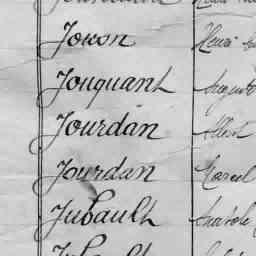 Jowon Henri
Jouquant Auguste
Jourdan Albert
Jourdan Marcel
Jubault Anatole